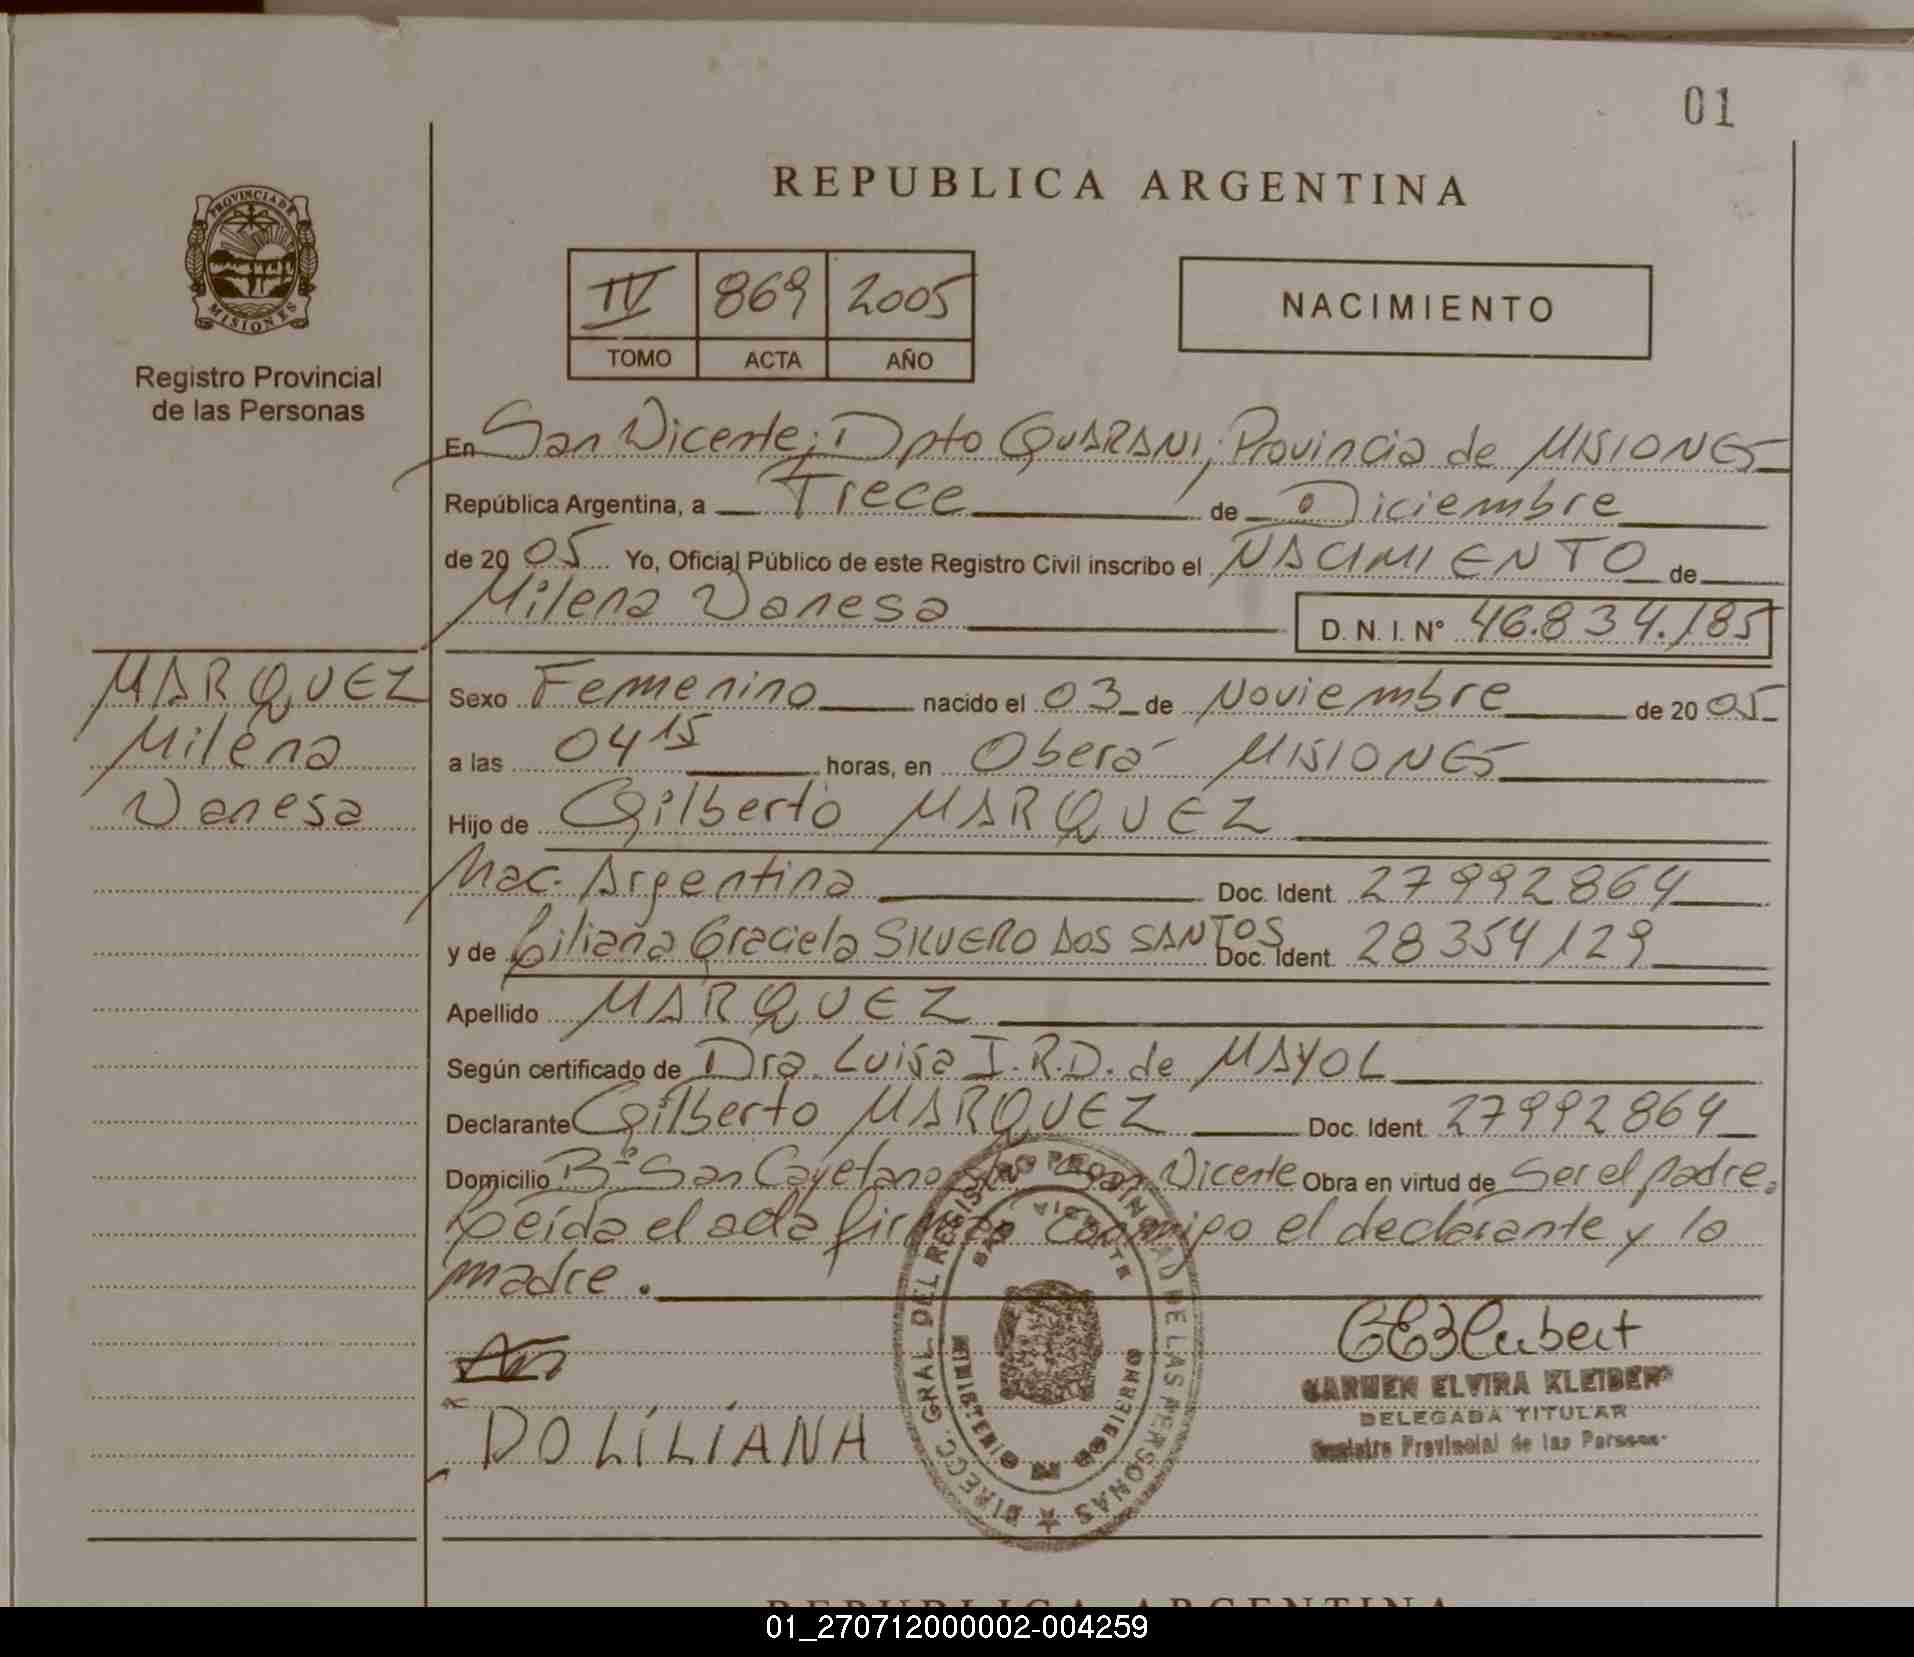 01
REPUBLICA ARGENTINA
PROVINCIA DE
MISIONES
Registro Provincial
de las Personas
IV 869 2005
TOMO ACTA AÑO
NACIMIENTO
En San Vicente; Dpto GUARANI; Provincia de MISIONES
República Argentina, a Trece de Diciembre
de 2005 Yo, Oficial Público de este Registro Civil inscribo el NACIMIENTO de
Milena Vanesa D. N. I. N° 46.834.185
MARQUEZ
Milena
Vanesa
Sexo Femenino nacido el 03 de Noviembre de 2005
a las 04 15 horas, en Oberá MISIONES
Hijo de Gilberto MARQUEZ
Nac. Argentina Doc. Ident. 27992864
y de Liliana Graciela SILVERO DOS SANTOS Doc. Ident. 28354129
Apellido MARQUEZ
Según certificado de Dra. Luisa I.R.D. de MAYOL
Declarante Gilberto MARQUEZ Doc. Ident. 27992864
Domicilio Bº San Cayetano San Vicente Obra en virtud de Ser el padre.
Leída el acta firman conmigo el declarante y la
madre.
DIRECC. GRAL. DEL REGISTRO PROVINCIAL DE LAS PERSONAS
MINISTERIO DE GOBIERNO
CARMEN ELVIRA KLEIBER
DELEGADA TITULAR
Registro Provincial de las Personas
DO LILIANA
REPUBLICA ARGENTINA
01_270712000002-004259